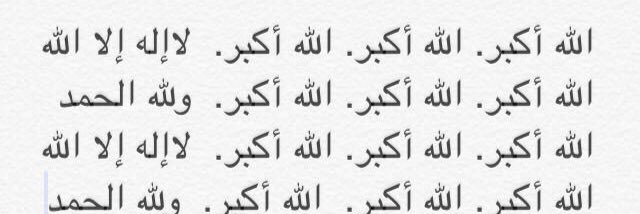 الله أكبر. الله أكبر. الله أكبر. لاإله إلا الله
الله أكبر. الله أكبر. الله أكبر. ولله الحمد
الله أكبر. الله أكبر. الله أكبر. لاإله إلا الله
الله أكبر. الله أكبر. الله أكبر. ولله الحمد